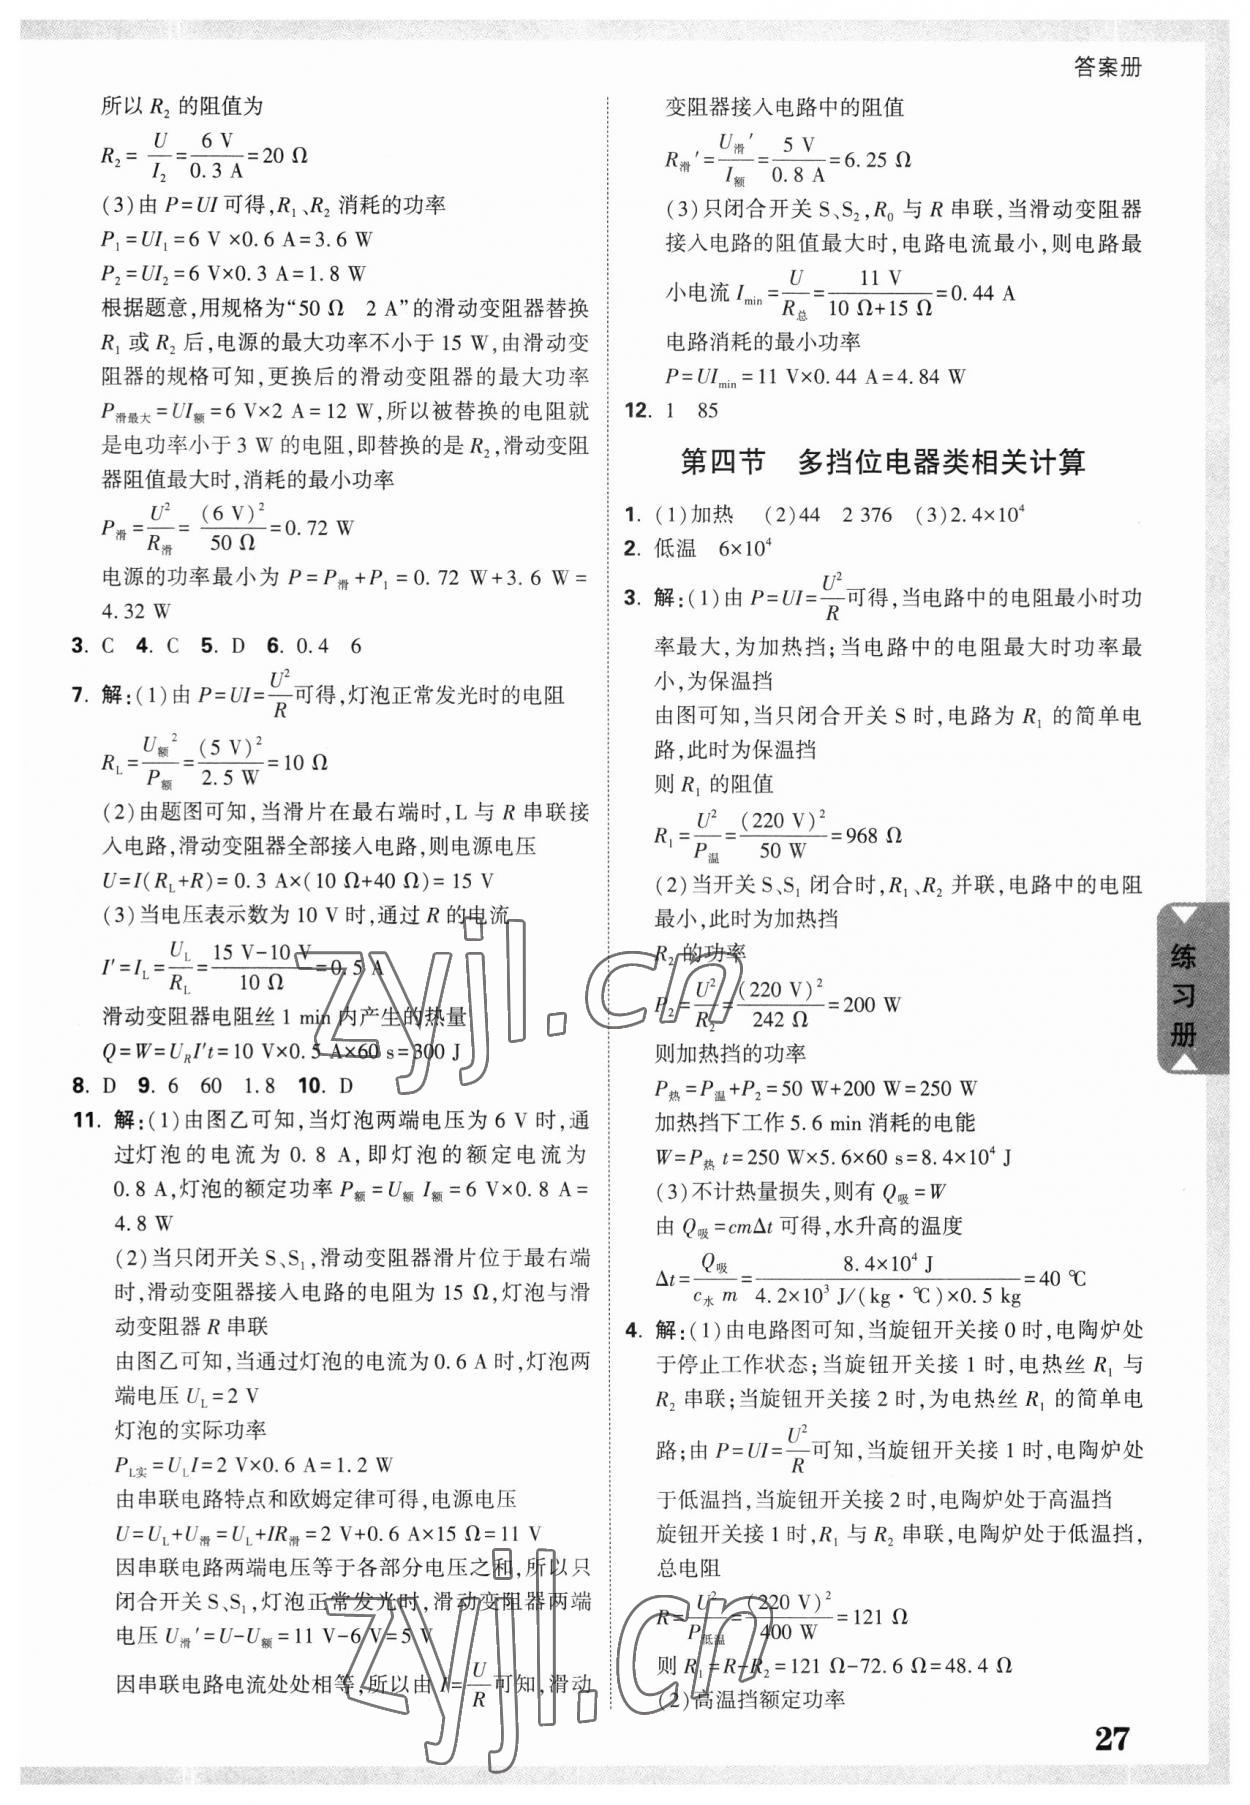 答案册
所以 R₂ 的阻值为
R₂= U/I₂ = 6 V/0.3 A =20 Ω
(3)由 P=UI 可得,R₁、R₂ 消耗的功率
P₁=UI₁=6 V ×0.6 A=3.6 W
P₂=UI₂=6 V×0.3 A=1.8 W
根据题意,用规格为“50 Ω 2 A”的滑动变阻器替换
R₁ 或 R₂ 后,电源的最大功率不小于 15 W,由滑动变
阻器的规格可知,更换后的滑动变阻器的最大功率
P滑最大=UI额=6 V×2 A=12 W,所以被替换的电阻就
是电功率小于 3 W 的电阻,即替换的是 R₂,滑动变阻
器阻值最大时,消耗的最小功率
P滑= U²/R滑 = (6 V)²/50 Ω =0.72 W
电源的功率最小为 P=P滑+P₁=0.72 W+3.6 W=
4.32 W
3. C 4. C 5. D 6. 0.4 6
7. 解:(1)由 P=UI= U²/R 可得,灯泡正常发光时的电阻
R_L= U额²/P额 = (5 V)²/2.5 W =10 Ω
(2)由题图可知,当滑片在最右端时,L 与 R 串联接
入电路,滑动变阻器全部接入电路,则电源电压
U=I(R_L+R)=0.3 A×(10 Ω+40 Ω)=15 V
(3)当电压表示数为 10 V 时,通过 R 的电流
I′=I_L= U_L/R_L = (15 V-10 V)/10 Ω =0.5 A
滑动变阻器电阻丝 1 min 内产生的热量
Q=W=U_R I′t=10 V×0.5 A×60 s=300 J
8. D 9. 6 60 1.8 10. D
11. 解:(1)由图乙可知,当灯泡两端电压为 6 V 时,通
过灯泡的电流为 0.8 A,即灯泡的额定电流为
0.8 A,灯泡的额定功率 P额=U额 I额=6 V×0.8 A=
4.8 W
(2)当只闭合开关 S、S₁,滑动变阻器滑片位于最右端
时,滑动变阻器接入电路的电阻为 15 Ω,灯泡与滑
动变阻器 R 串联
由图乙可知,当通过灯泡的电流为 0.6 A 时,灯泡两
端电压 U_L=2 V
灯泡的实际功率
P_L实=U_L I=2 V×0.6 A=1.2 W
由串联电路特点和欧姆定律可得,电源电压
U=U_L+U滑=U_L+IR滑=2 V+0.6 A×15 Ω=11 V
因串联电路两端电压等于各部分电压之和,所以只
闭合开关 S、S₁,灯泡正常发光时,滑动变阻器两端
电压 U滑′=U-U额=11 V-6 V=5 V
因串联电路电流处处相等,所以由 I= U/R 可知,滑动
变阻器接入电路中的阻值
R滑′= U滑′/I额 = 5 V/0.8 A =6.25 Ω
(3)只闭合开关 S、S₂,R₀ 与 R 串联,当滑动变阻器
接入电路的阻值最大时,电路电流最小,则电路最
小电流 I_min= U/R总 = 11 V/(10 Ω+15 Ω) =0.44 A
电路消耗的最小功率
P=UI_min=11 V×0.44 A=4.84 W
12. 1 85
第四节 多挡位电器类相关计算
1. (1)加热 (2)44 2 376 (3)2.4×10⁴
2. 低温 6×10⁴
3. 解:(1)由 P=UI= U²/R 可得,当电路中的电阻最小时功
率最大,为加热挡;当电路中的电阻最大时功率最
小,为保温挡
由图可知,当只闭合开关 S 时,电路为 R₁ 的简单电
路,此时为保温挡
则 R₁ 的阻值
R₁= U²/P温 = (220 V)²/50 W =968 Ω
(2)当开关 S、S₁ 闭合时,R₁、R₂ 并联,电路中的电阻
最小,此时为加热挡
R₂ 的功率
P₂= U²/R₂ = (220 V)²/242 Ω =200 W
则加热挡的功率
P热=P温+P₂=50 W+200 W=250 W
加热挡下工作 5.6 min 消耗的电能
W=P热 t=250 W×5.6×60 s=8.4×10⁴ J
(3)不计热量损失,则有 Q吸=W
由 Q吸=cmΔt 可得,水升高的温度
Δt= Q吸/(c水 m) = 8.4×10⁴ J/(4.2×10³ J/(kg·℃)×0.5 kg) =40 ℃
4. 解:(1)由电路图可知,当旋钮开关接 0 时,电陶炉处
于停止工作状态;当旋钮开关接 1 时,电热丝 R₁ 与
R₂ 串联;当旋钮开关接 2 时,为电热丝 R₁ 的简单电
路;由 P=UI= U²/R 可知,当旋钮开关接 1 时,电陶炉处
于低温挡,当旋钮开关接 2 时,电陶炉处于高温挡
旋钮开关接 1 时,R₁ 与 R₂ 串联,电陶炉处于低温挡,
总电阻
R= U²/P低温 = (220 V)²/400 W =121 Ω
则 R₁=R-R₂=121 Ω-72.6 Ω=48.4 Ω
(2)高温挡额定功率
练习册
27
zyjl.cn
zyjl.cn